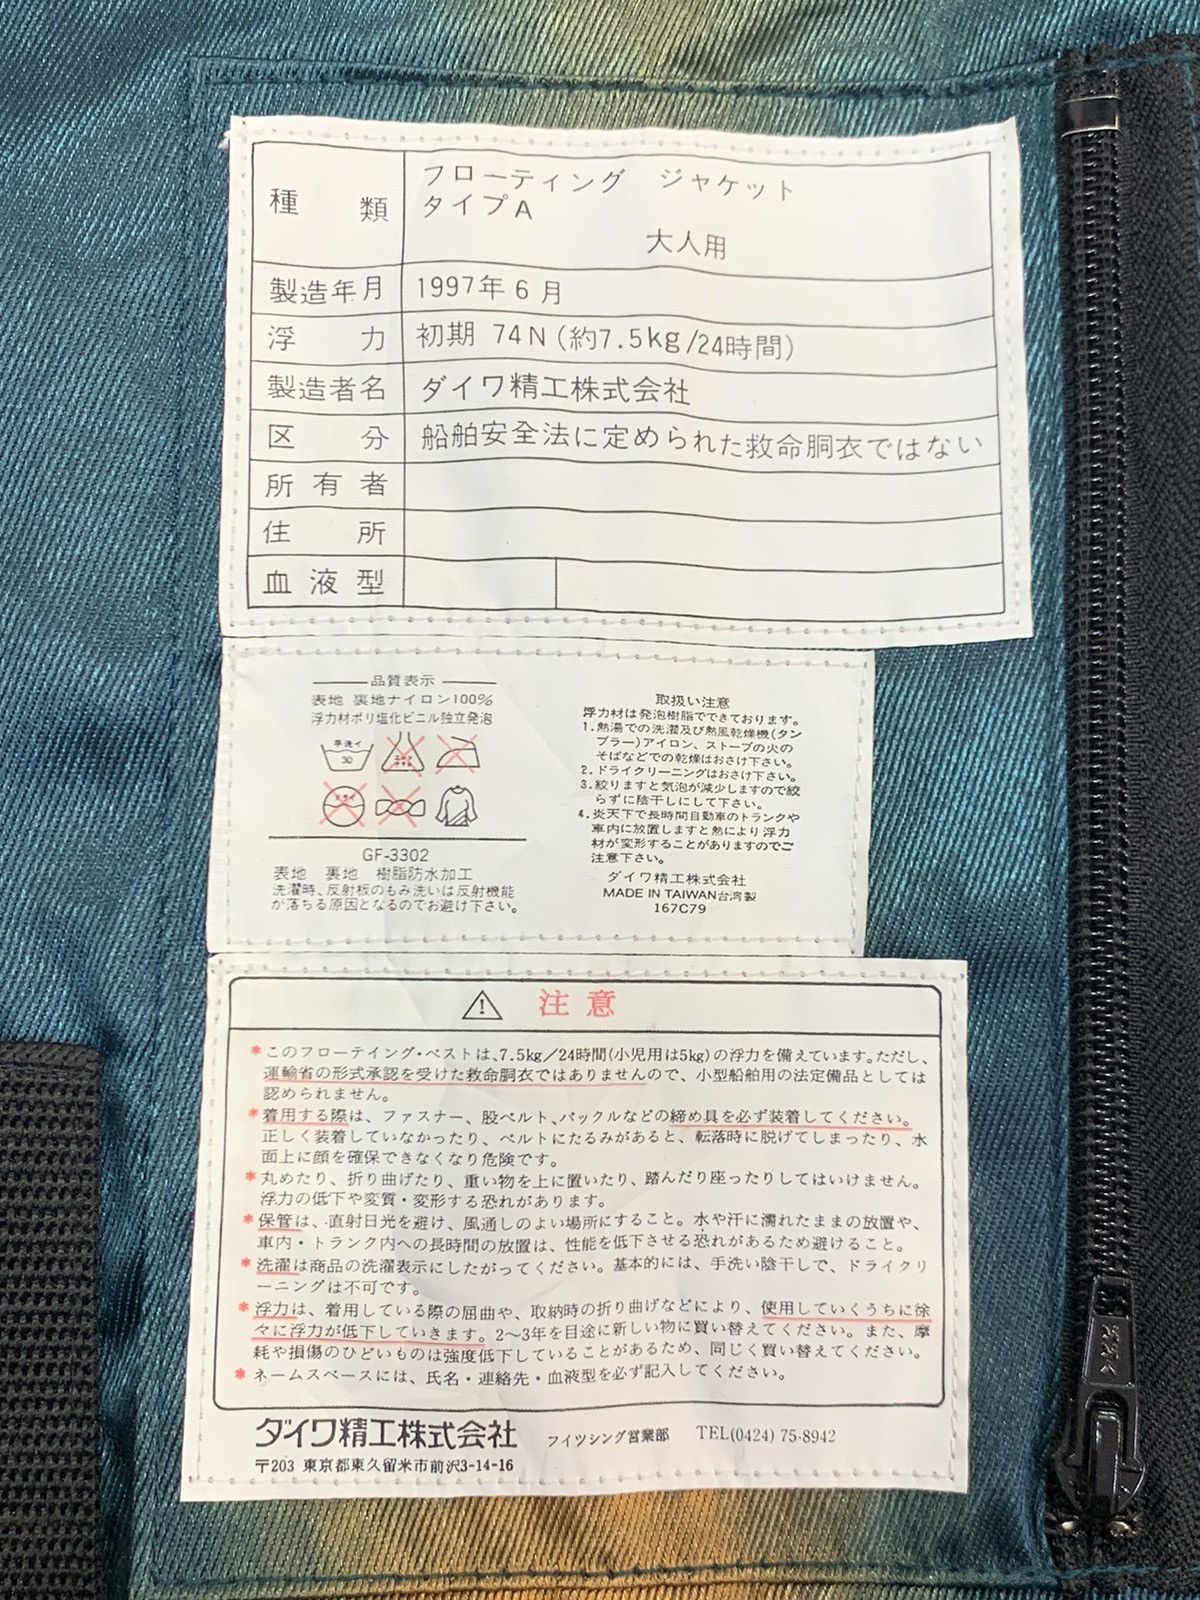 種類 フローティング ジャケット
タイプA
大人用
製造年月 1997年6月
浮力 初期 74N(約7.5kg/24時間)
製造者名 ダイワ精工株式会社
区分 船舶安全法に定められた救命胴衣ではない
所有者
住所
血液型
品質表示
表地 裏地ナイロン100%
浮力材ポリ塩化ビニル独立発泡
手洗イ
30
GF-3302
表地 裏地 樹脂防水加工
洗濯時、反射板のもみ洗いは反射機能
が落ちる原因となるのでお避け下さい。
取扱い注意
浮力材は発泡樹脂でできております。
1.熱湯での洗濯及び熱風乾燥機(タン
ブラー)アイロン、ストーブの火の
そばなどでの乾燥はおさけ下さい。
2.ドライクリーニングはおさけ下さい。
3.絞りますと気泡が減少しますので絞
らずに陰干しにして下さい。
4.炎天下で長時間自動車のトランクや
車内に放置しますと熱により浮力
材が変形することがありますのでご
注意下さい。
ダイワ精工株式会社
MADE IN TAIWAN台湾製
167C79
注意
*このフローテイング・ベストは、7.5kg/24時間(小児用は5kg)の浮力を備えています。ただし、
運輸省の形式承認を受けた救命胴衣ではありませんので、小型船舶用の法定備品としては
認められません。
*着用する際は、ファスナー、股ベルト、バックルなどの締め具を必ず装着してください。
正しく装着していなかったり、ベルトにたるみがあると、転落時に脱げてしまったり、水
面上に顔を確保できなくなり危険です。
*丸めたり、折り曲げたり、重い物を上に置いたり、踏んだり座ったりしてはいけません。
浮力の低下や変質・変形する恐れがあります。
*保管は、直射日光を避け、風通しのよい場所にすること。水や汗に濡れたままの放置や、
車内・トランク内への長時間の放置は、性能を低下させる恐れがあるため避けること。
*洗濯は商品の洗濯表示にしたがってください。基本的には、手洗い陰干しで、ドライクリ
ーニングは不可です。
*浮力は、着用している際の屈曲や、取納時の折り曲げなどにより、使用していくうちに徐
々に浮力が低下していきます。2〜3年を目途に新しい物に買い替えてください。また、摩
耗や損傷のひどいものは強度低下していることがあるため、同じく買い替えてください。
*ネームスペースには、氏名・連絡先・血液型を必ず記入してください。
ダイワ精工株式会社 フイツシング営業部 TEL(0424)75-8942
〒203 東京都東久留米市前沢3-14-16
YKK